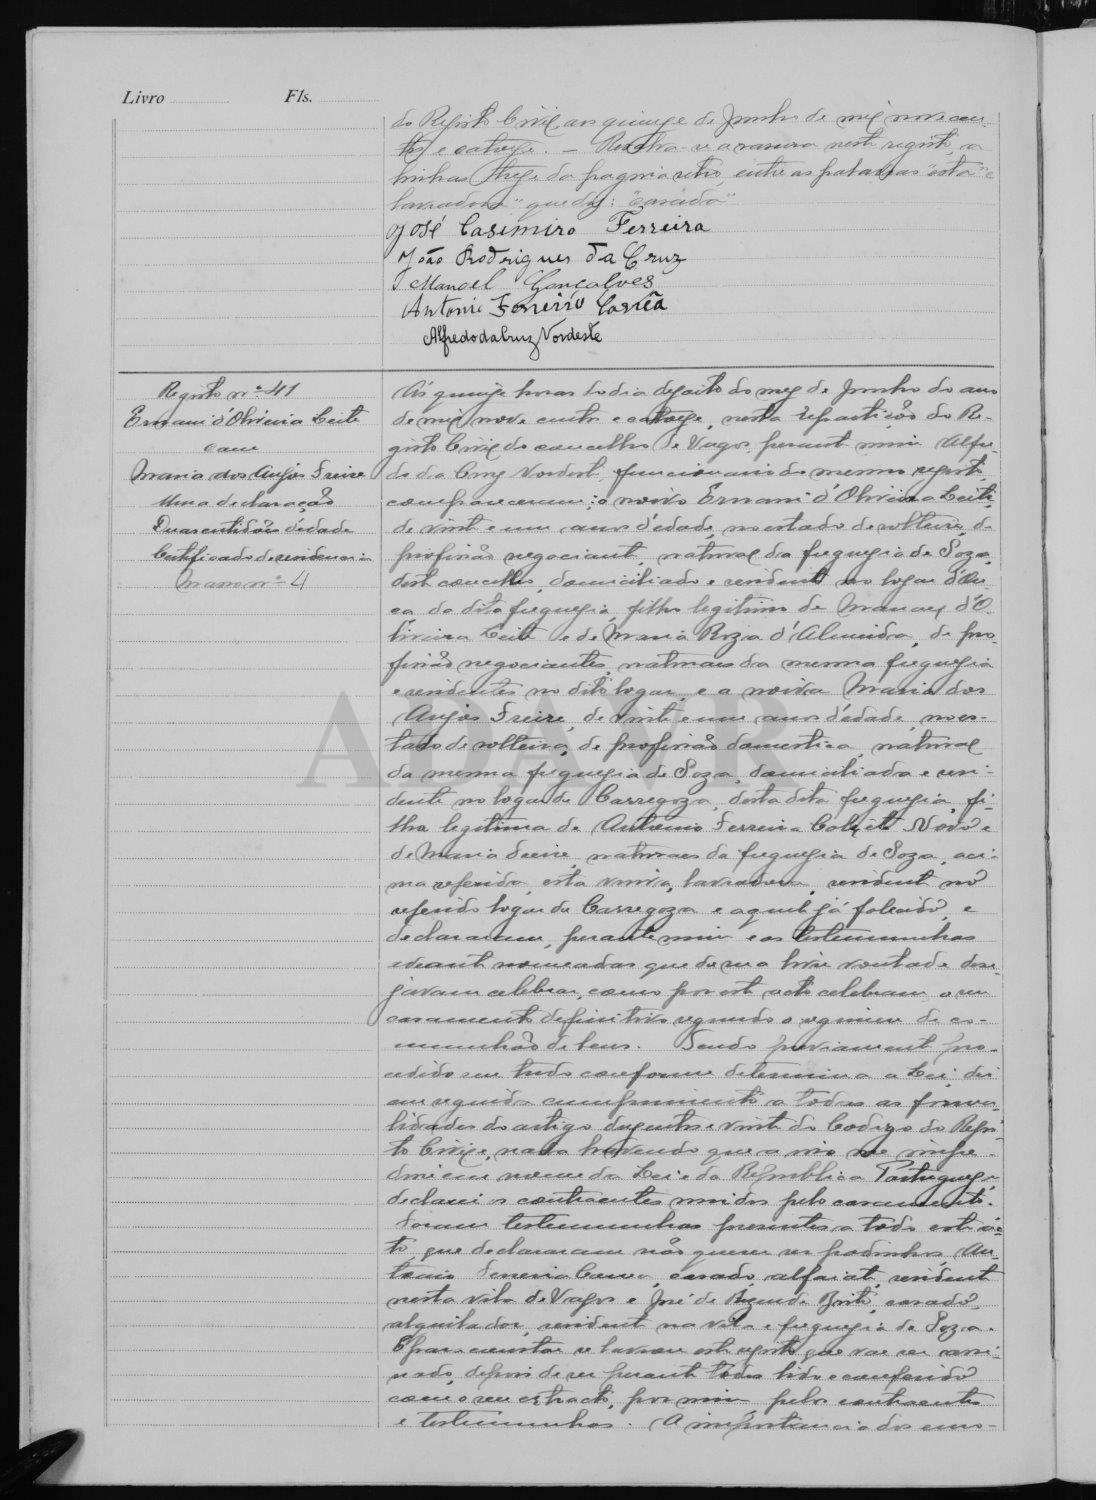 Livro Fls.
do Registo Civil, aos quinze de Junho de mil novecen-
tos e catorze. — Resalva-se a rasura neste registo, a
linhas treze da pagina retro, entre as palavras "esta" e
lavradora" que diz: "casada"
José Casimiro Ferreira
João Rodrigues da Cruz
Manoel Gonçalves
Antonio Ferreiro
Alfredo da Cruz Nordeste
Registo nº 41
Ernani d'Oliveira Leite
com
Maria dos Anjos Freire
Uma declaração
Duas certidões d'edade
Certificado de residencia
Maço nº 4
Ás quinze horas do dia dezoito do mez de Junho do ano
de mil nove centos e catorze, nesta repartição do Re-
gisto Civil do concelho de Vagos, perante mim Alfre-
do da Cruz Nordeste, funcionario do mesmo registo,
compareceram: o noivo Ernani d'Oliveira Leite,
de vinte e um anos d'edade, no estado de solteiro, de
profissão negociante, natural da freguesia de Soza,
deste concelho, domiciliado e residente no logar d'Ou-
ca, da dita freguesia, filho legitimo de Manoel d'O-
liveira Leite e de Maria Roza d'Almeida, de pro-
fissão negociantes, naturaes da mesma freguesia
e residentes no dito logar, e a noiva Maria dos
Anjos Freire, de vinte e um anos d'edade, no es-
tado de solteira, de profissão domestica, natural
da mesma freguesia de Soza, domiciliada e resi-
dente no logar de Carregoza, desta dita freguesia, fi-
lha legitima de Antonio Ferreira Novo e
de Maria Freire, naturaes da freguesia de Soza, aci-
ma referida, esta viuva, lavradora, residente no
referido logar da Carregoza e aquele já falecido, e
declararam, perante mim e as testemunhas
adeante nomeadas que de sua livre vontade dese-
javam celebrar, como por este acto celebram o seu
casamento definitivo segundo o regimen de co-
munhão de bens. Tendo previamente pro-
cedido em tudo conforme determina a Lei, dei
em seguida cumprimento a todas as forma-
lidades do artigo duzentos e vinte do Codigo do Regis-
to Civil e, nada havendo que a isso me impe-
disse, em nome da Lei e da Republica Portugueza,
declarei os contraentes unidos pelo casamento.
Foram testemunhas presentes a todo este ác-
to, que declararam não querer ser padrinhos, An-
tonio Ferreira, casado, alfaiate, residente
nesta vila de Vagos e José de Rezende Brito, casado,
alquilador, residente na vila e freguesia de Soza.
E para constar se lavrou este registo que vae ser assi-
nado, depois de ser perante todos lido e conferido
com o seu extracto, por mim, pelos contraentes
e testemunhas. A importancia dos emo-
ADAVR